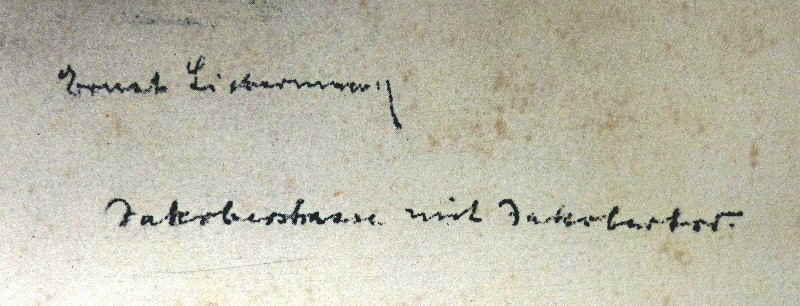 Ernst Liebermann
Jakoberstrasse mit Jakobertor.